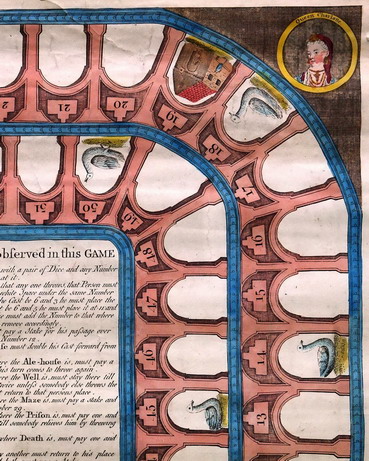 Queen
21
20
19
18
17
16
15
14
13
51
50
49
48
47
46
45
observed in this GAME
with a pair of Dice and any Number
at it.
that any one throws, that Person must
white Space under the same Number
the Cast be 6 and 3, he must place the
be 6 and 3, he must place it at 12 and
must add the Number to that where
remove accordingly.
pay a Stake for his passage over
Number 12.
must double his Cast forward from
the Ale-house is, must pay a
his turn comes to throw again.
the Well is, must stay there till
twice unless somebody else throws the
return to that persons place.
the Maze is, must pay a Stake and
29.
where the Prison is, must pay one and
till somebody relieves him by throwing
where Death is, must pay one and
another must return to his place